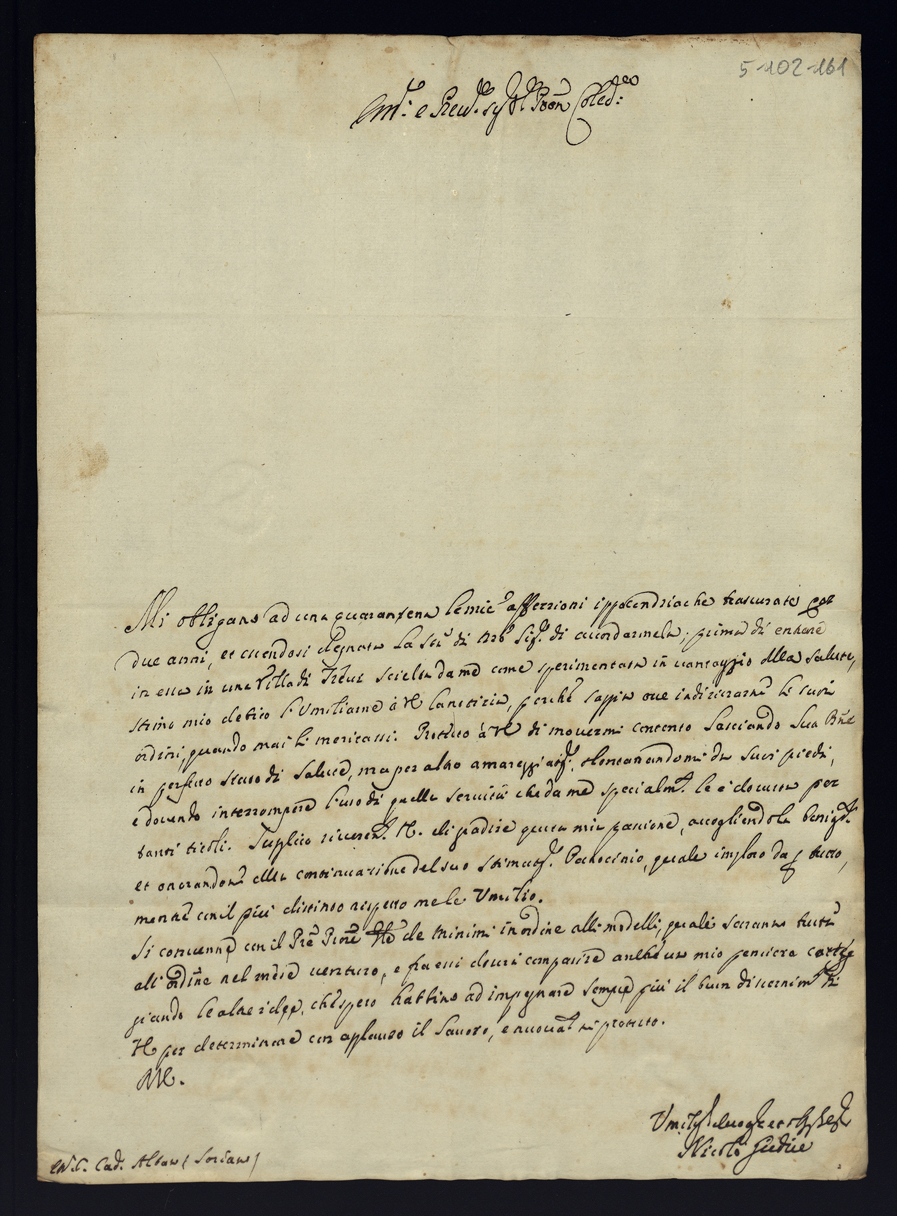 5-102-161
Em.º e Rev.º Sig.r Pron Col.mo
Mi obligano ad una quarantena le mie affezzioni ippocondriache trascurate per
due anni, et essendosi degnata la Stà di Nrõ Sig.re di accordarmela; prima di entrare
in essa in una Villa di Frascati scielta da me come sperimentata in vantaggio della salute,
stimo mio debito l'umiliarne à VE la notizia, perchè sappia ove indirizzarmi li suoi
ordini, quando mai li meritassi. Protesto à VE di movermi contento lasciando Sua Bne
in perfetto stato di salute, ma per altro amareggiatiss.º allontanandomi da suoi piedi,
e dovendo interrompere l'uso di quella servitù che da me specialm.te le è dovuta per
tanti titoli. Supplico riverentem.te VE di gradire questa mia passione, accogliendola benignam.te
et onorandomi della continuazione del suo stimatiss.º Patrocinio, quale imploro da per tutto,
mentre con il più distinto rispetto me le Umilio.
Si convenne con il Pre Pione de Minimi in ordine alli modelli, quali saranno tutti
all'ordine nel mese venturo, e fra essi dovrà comparire anche un mio pensiere
giando le altre idee, che spero habbino ad impegnare sempre più il buon discernim.to di
VE per determinare con aplauso il lavoro, e nuovam.te mi protesto.
DVE.
Nicolò Giudice
Card. Albani (Soriano)